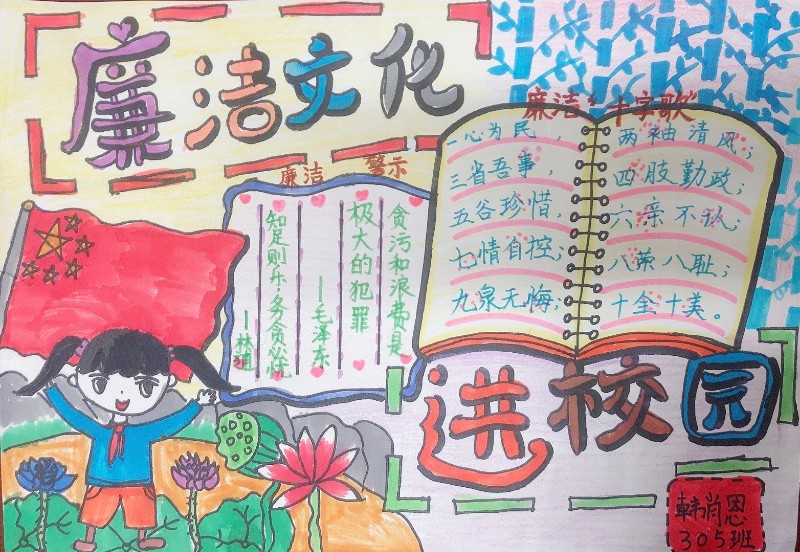 廉洁文化
廉洁 警示
贪污和浪费是
极大的犯罪
—毛泽东
知足则乐 务贪必忧
—林逋
廉洁"十字歌"
一心为民
两袖清风；
三省吾事，
四肢勤政；
五谷珍惜，
六亲不认；
七情自控；
八荣八耻；
九泉无悔；
十全十美。
进校园
韩肖恩
305班